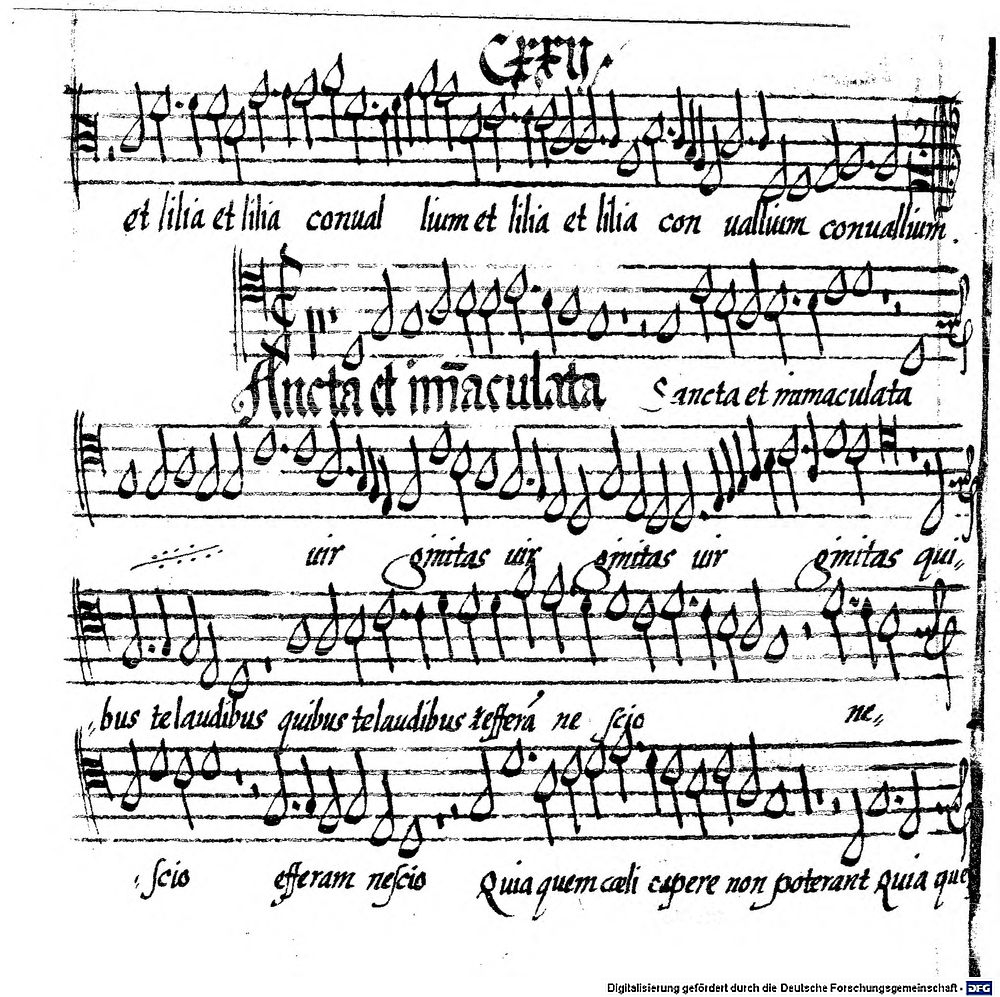 CXXII
et lilia et lilia conual lium et lilia et lilia con uallium conuallium.
Ancta et im̄aculata Sancta et immaculata
uir ginitas uir ginitas uir ginitas qui,,
,,bus te laudibus quibus te laudibus efferā ne scio ne,,
scio efferam nescio Quia quem cæli capere non poterant Quia que
Digitalisierung gefördert durch die Deutsche Forschungsgemeinschaft - DFG